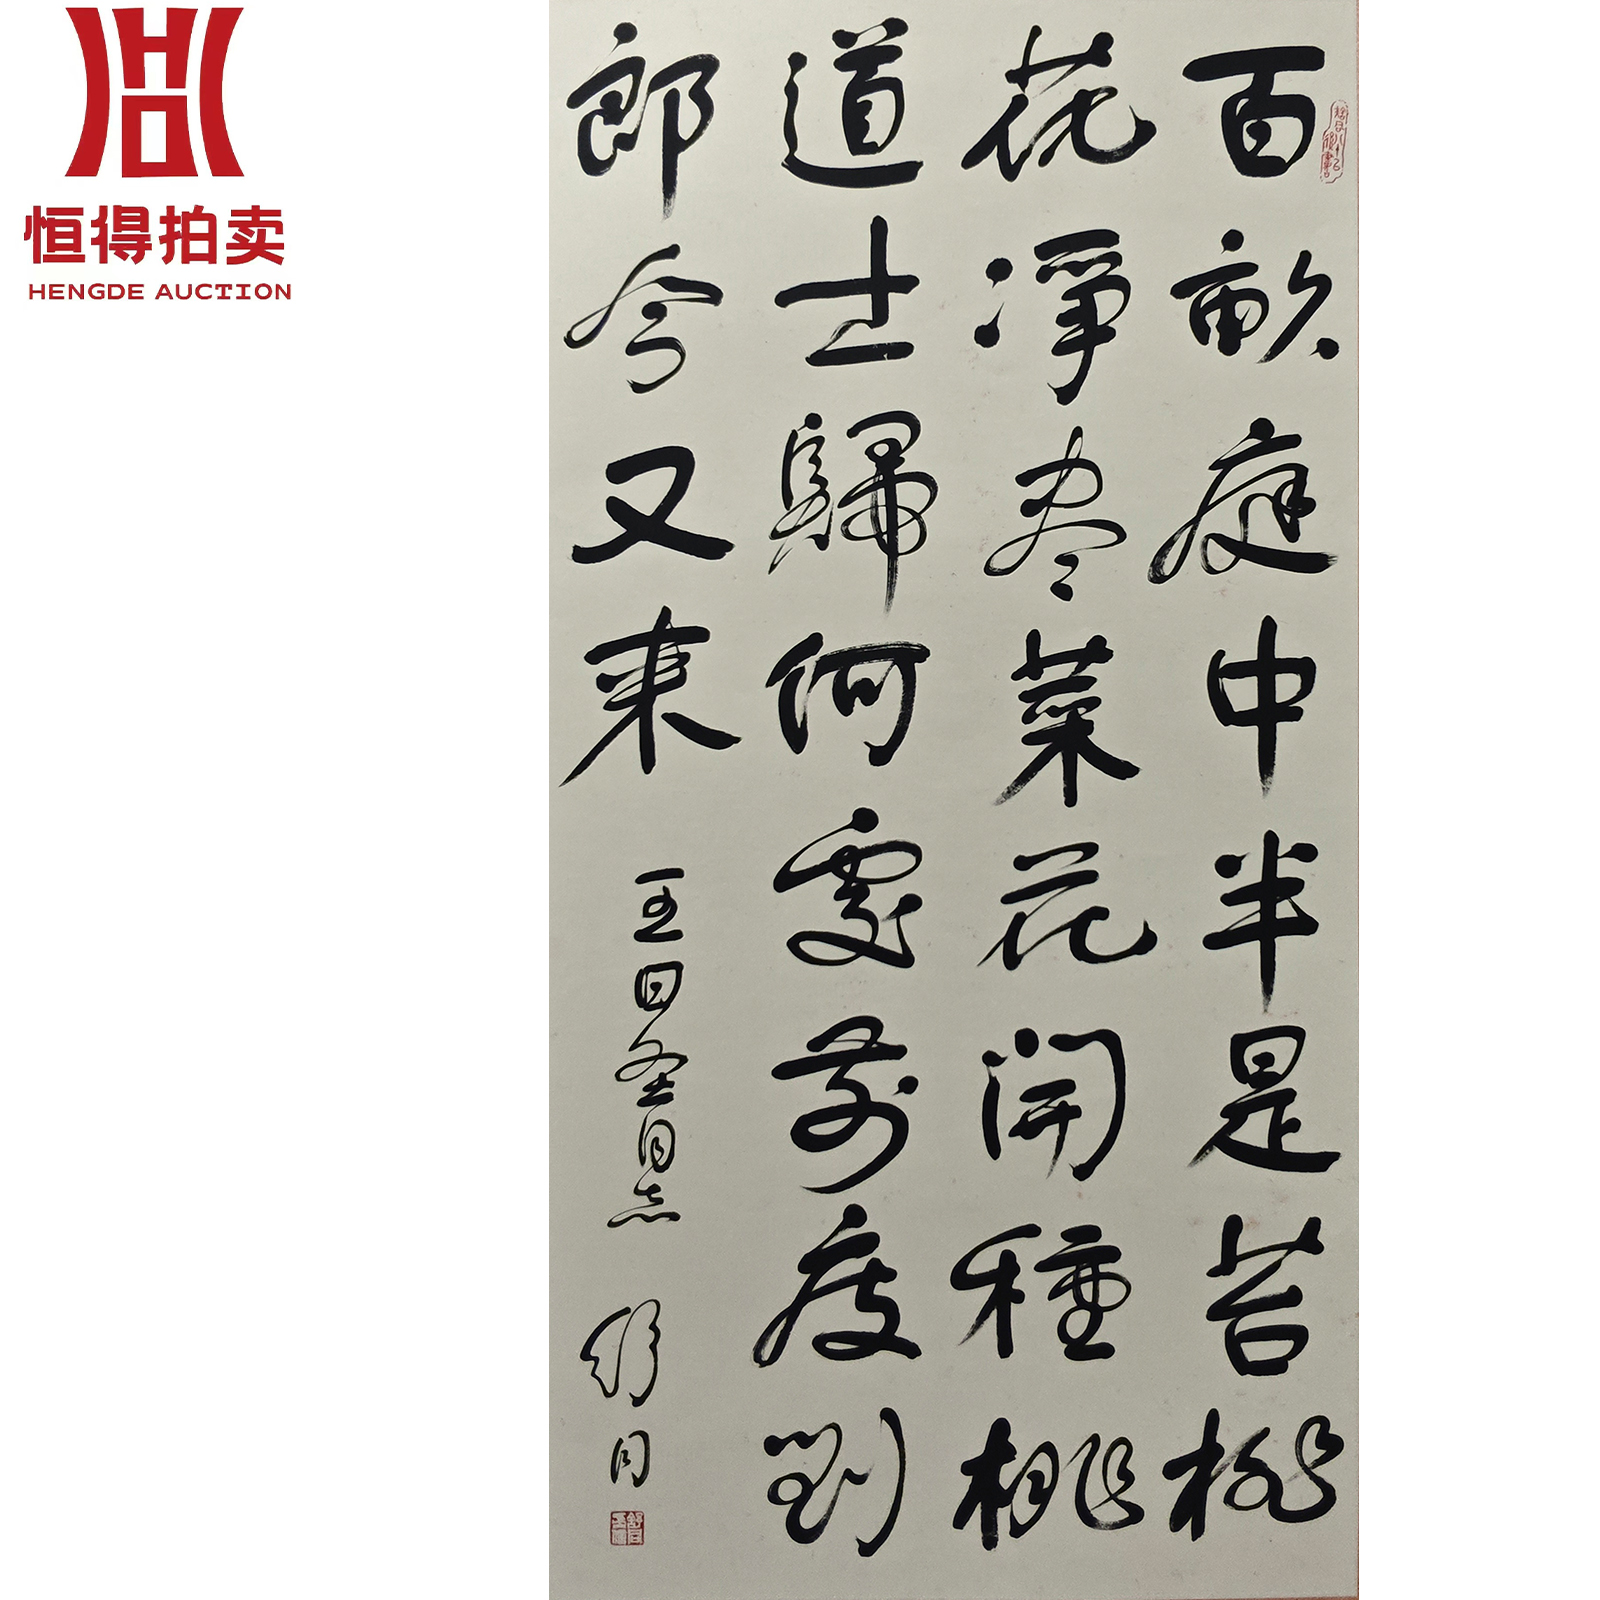 恒得拍卖
HENGDE AUCTION
百畝庭中半是苔桃
花凈尽菜花開種桃
道士歸何處前度劉
郎今又来
同志
舒同